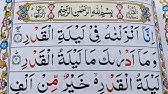 بِسْمِ اللّٰهِ الرَّحْمٰنِ الرَّحِيْمِ
اِنَّاۤ اَنْزَلْنٰهُ فِیْ لَیْلَةِ الْقَدْرِ
وَمَاۤ اَدْرٰىكَ مَا لَیْلَةُ الْقَدْرِ
لَیْلَةُ الْقَدْرِ خَیْرٌ مِّنْ اَلْفِ